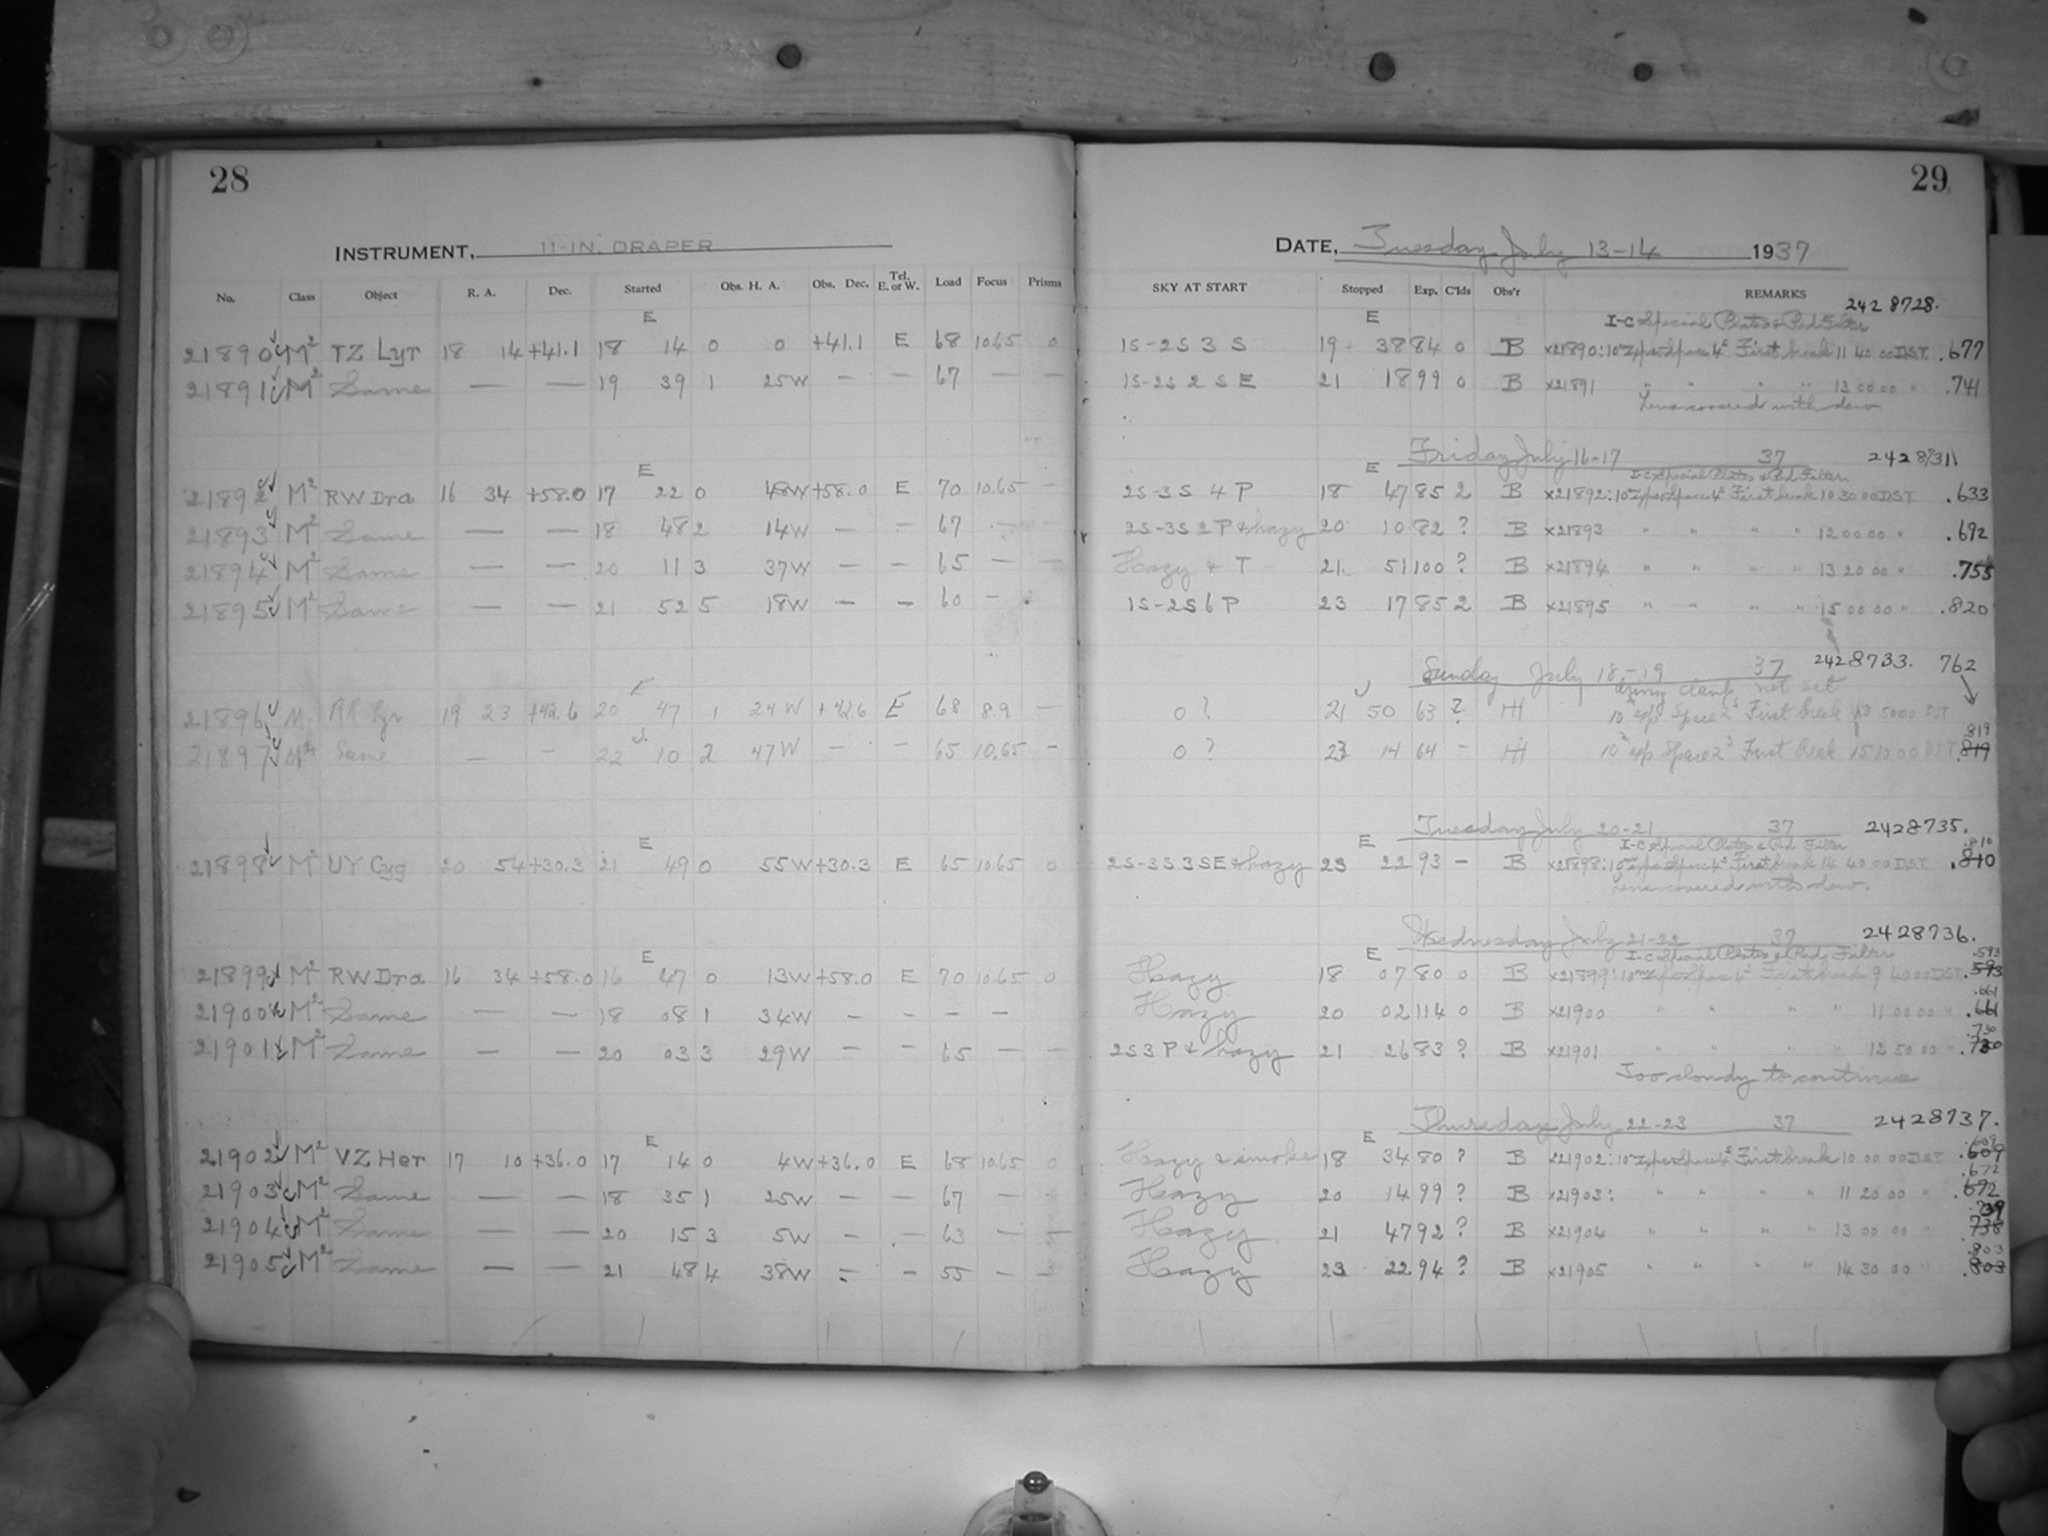 28
INSTRUMENT, 11-IN. DRAPER
No. Class Object R. A. Dec. Started Obs. H. A. Obs. Dec. Tel. E. or W. Load Focus Prisms
E
21890 M² TZ Lyr 18 14 +41.1 18 14 0 0 +41.1 E 68 10.65 0
21891 M² Same — — 19 39 1 25W — — 67 — —
E
21892 M² RW Dra 16 34 +58.0 17 22 0 48W +58.0 E 70 10.65 —
21893 M² Same — — 18 48 2 14W — — 67 — —
21894 M² Same — — 20 11 3 37W — — 65 — —
21895 M² Same — — 21 52 5 18W — — 60 —
21896 M RR Lyr 19 23 +42.6 20 47 1 24W +42.6 E 68 8.9 —
21897 M² Same — — 22 10 2 47W — — 65 10.65 —
E
21898 M² UY Cyg 20 54 +30.3 21 49 0 55W +30.3 E 65 10.65 0
E
21899 M² RW Dra 16 34 +58.0 16 47 0 13W +58.0 E 70 10.65 0
21900 M² Same — — 18 08 1 34W — — — —
21901 M² Same — — 20 03 3 29W — — 65 — —
E
21902 M² VZ Her 17 10 +36.0 17 14 0 4W +36.0 E 68 10.65 0
21903 M² Same — — 18 35 1 25W — — 67 — —
21904 M² Same — — 20 15 3 5W — — 63 — —
21905 M² Same — — 21 48 4 38W — — 55 — —
29
DATE, Tuesday July 13-14 1937
SKY AT START Stopped Exp. C'lds Obs'r REMARKS 242 8728.
E I-C Special Plates & Red Filter
1S-2S 3 S 19 38 84 0 B x21890: 10ˣ exp Space 4ˢ First break 11 40 00 DST .677
1S-2S 2 S E 21 18 99 0 B x21891 " " " " 13 00 00 " .741
Lens covered with dew
Friday July 16-17 37 242 8731
E I-C Special Plates & Red Filter
2S-3S 4 P 18 47 85 2 B x21892: 10ˣ exp Space 4ˢ First break 10 30 00 DST .633
2S-3S 2 P & hazy 20 10 82 ? B x21893 " " " " 12 00 00 " .692
Hazy & T 21 51 100 ? B x21894 " " " " 13 20 00 " .755
1S-2S 6 P 23 17 85 2 B x21895 " " " " 15 00 00 " .820
Sunday July 18-19 37 242 8733. 762
driving clamp not set
0 ? 21 50 63 ? H 10ˣ exp Space 2ˢ First break 13 50 00 DST
.819
0 ? 23 14 64 — H 10ˣ exp Space 2ˢ First break 15 10 00 DST .819
Tuesday July 20-21 37 2428735.
E I-C Special Plates & Red Filter .810
2S-3S 3 SE & hazy 23 22 93 — B x21898: 10ˣ exp Space 4ˢ First break 14 40 00 DST .810
Lens covered with dew.
Wednesday July 21-22 37 2428736.
E I-C Special Plates & Red Filter .593
Hazy 18 07 80 0 B x21899: 10ˣ exp Space 4ˢ First break 9 40 00 DST .593
.661
Hazy 20 02 114 0 B x21900 " " " " 11 00 00 " .661
.730
2S 3 P & hazy 21 26 83 ? B x21901 " " " " 12 50 00 " .730
Too cloudy to continue
Thursday July 22-23 37 2428737.
E .609
Hazy & smoke 18 34 80 ? B x21902: 10ˣ exp Space 4ˢ First break 10 00 00 DST .609
.672
Hazy 20 14 99 ? B x21903: " " " " 11 20 00 " .672
Hazy 21 47 92 ? B x21904 " " " " 13 00 00 " .738
.803
Hazy 23 22 94 ? B x21905 " " " " 14 30 00 " .803